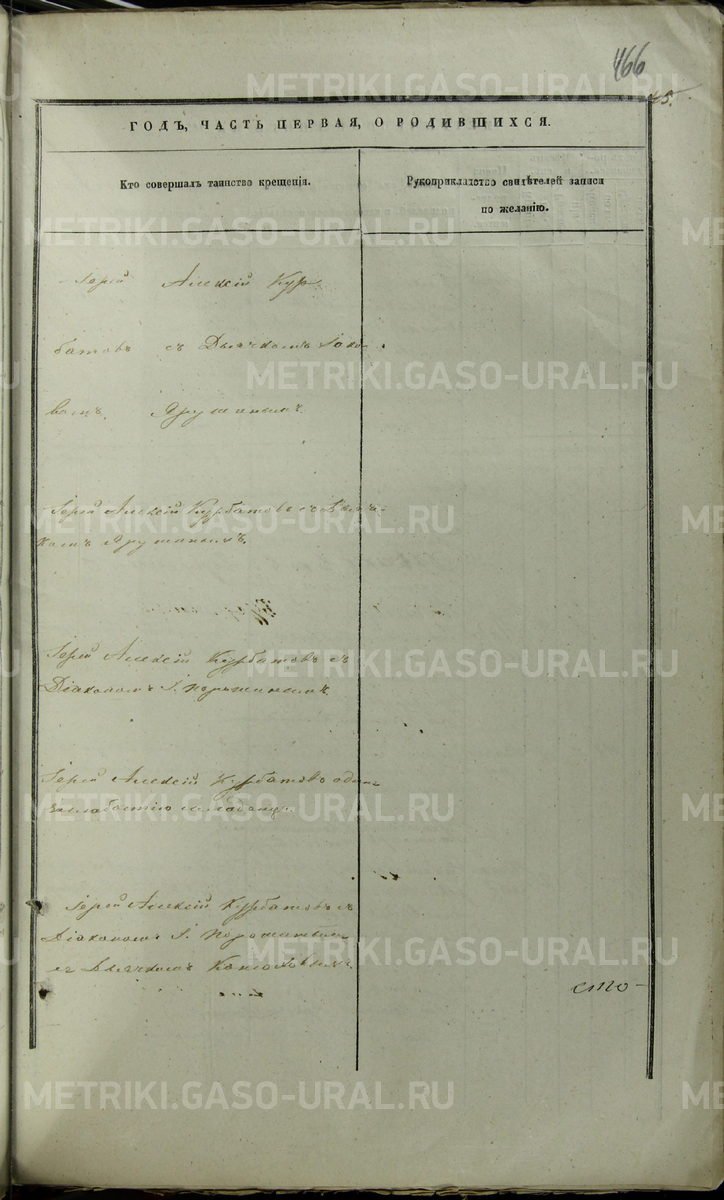 466
45.
ГОДЪ, ЧАСТЬ ПЕРВАЯ, О РОДИВШИХСЯ.
Кто совершалъ таинство крещенія.
Рукоприкладство свидѣтелей записи
по желанію.
Іерей Алексій Кур
батовъ съ Дьячкомъ Іако
вомъ
Іерей Алексій Курбатовъ съ Дьяч-
комъ
Іерей Алексій Курбатовъ съ
Діакономъ І.
Іерей Алексій Курбатовъ одинъ
за слабостію младенца.
Іерей Алексій Курбатовъ съ
Діакономъ І.
съ Дьячкомъ
сто-
METRIKI.GASO-URAL.RU
METRIKI.GASO-URAL.RU
METRIKI.GASO-URAL.RU
METRIKI.GASO-URAL.RU
METRIKI.GASO-URAL.RU
METRIKI.GASO-URAL.RU
METRIKI.GASO-URAL.RU
METRIKI.GASO-URAL.RU